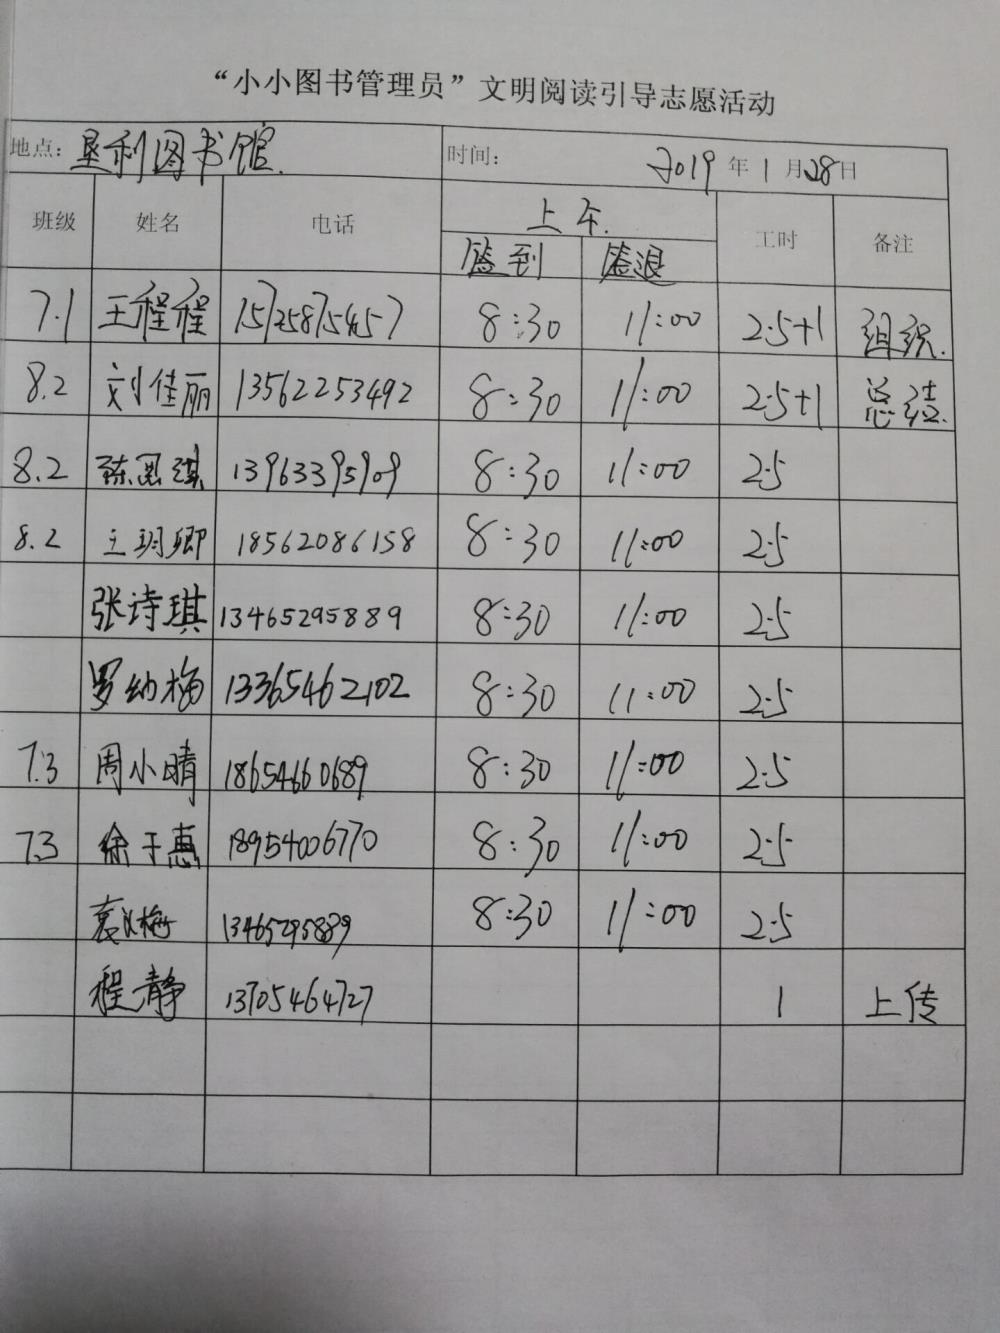 “小小图书管理员”文明阅读引导志愿活动
地点：垦利图书馆. 时间： 2019年1月28日
班级 姓名 电话 上午. 工时 备注
签到 签退
7.1 王程程 15725875457 8:30 11:00 2.5+1 组织.
8.2 刘佳丽 13562253492 8:30 11:00 2.5+1 总结.
8.2 陈思琪 13963395909 8:30 11:00 2.5
8.2 王玥卿 18562086158 8:30 11:00 2.5
张诗琪 13465295889 8:30 11:00 2.5
罗幼梅 13365462102 8:30 11:00 2.5
7.3 周小晴 18654660689 8:30 11:00 2.5
7.3 徐于惠 18954006770 8:30 11:00 2.5
袁义梅 13465295889 8:30 11:00 2.5
程静 13705464727 1 上传